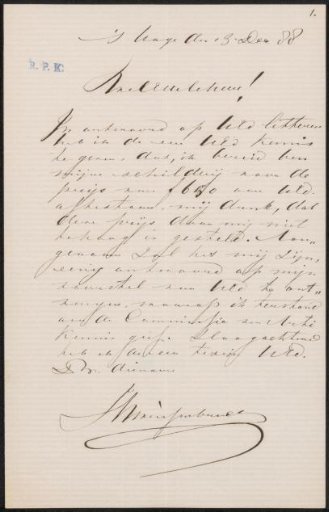 1.
's Hage den 13 Dec 88
R. P. K.
WelEdele heer!
In antwoord op UEd letteren
heb ik de eer UEd kennis
te geven dat ik bereid ben
mijne schilderij voor de
prijs van f 650 aan UEd
af te staan, mij dunkt, dat
deze prijs door mij niet
te hoog is gesteld. Aan-
genaam zal het mij zijn
antwoord op mijn
voorstel van UEd te ont-
vangen, waarop ik
aan de Commissie van Arti
kennis geef. Hoogachtend
heb ik de eer te zijn UEd.
Dw. dienaar